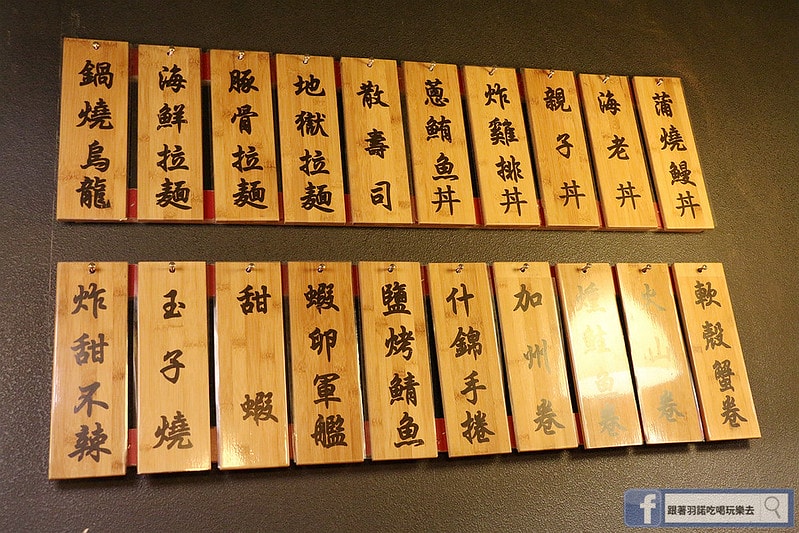 蒲燒鰻丼
海老丼
親子丼
炸雞排丼
蔥鮪魚丼
散壽司
地獄拉麵
豚骨拉麵
海鮮拉麵
鍋燒烏龍
軟殼蟹卷
火山卷
鮭魚卷
加州卷
什錦手捲
鹽烤鯖魚
蝦卵軍艦
甜蝦
玉子燒
炸甜不辣
跟著羽諾吃喝玩樂去